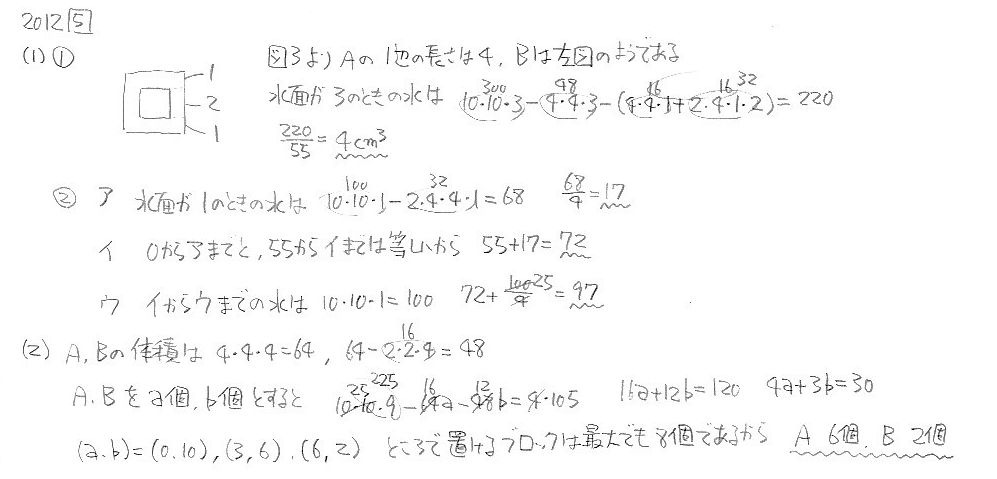 2012 5
(1) ① 図3より Aの1辺の長さは4, Bは左図のようである
1
2
1
水面が3のときの水は 10・10・3-4・4・3-(4・4・1+2・4・1・2)=220
300 48 16 16 32
220/55=4cm³
② ア 水面が1のときの水は 10・10・1-2・4・4・1=68 68/4=17
100 32
イ 0からアまでと,55からイまでは等しいから 55+17=72
ウ イからウまでの水は 10・10・1=100 72+100/4=97
25
(2) A,Bの体積は 4・4・4=64, 64-2・2・4=48
16
A.Bをa個,b個とすると 10・10・9-64a-48b=4・105 16a+12b=120 4a+3b=30
25 225 16 12
(a.b)=(0.10),(3,6).(6,2) ところで置けるブロックは最大でも8個であるから A 6個, B 2個